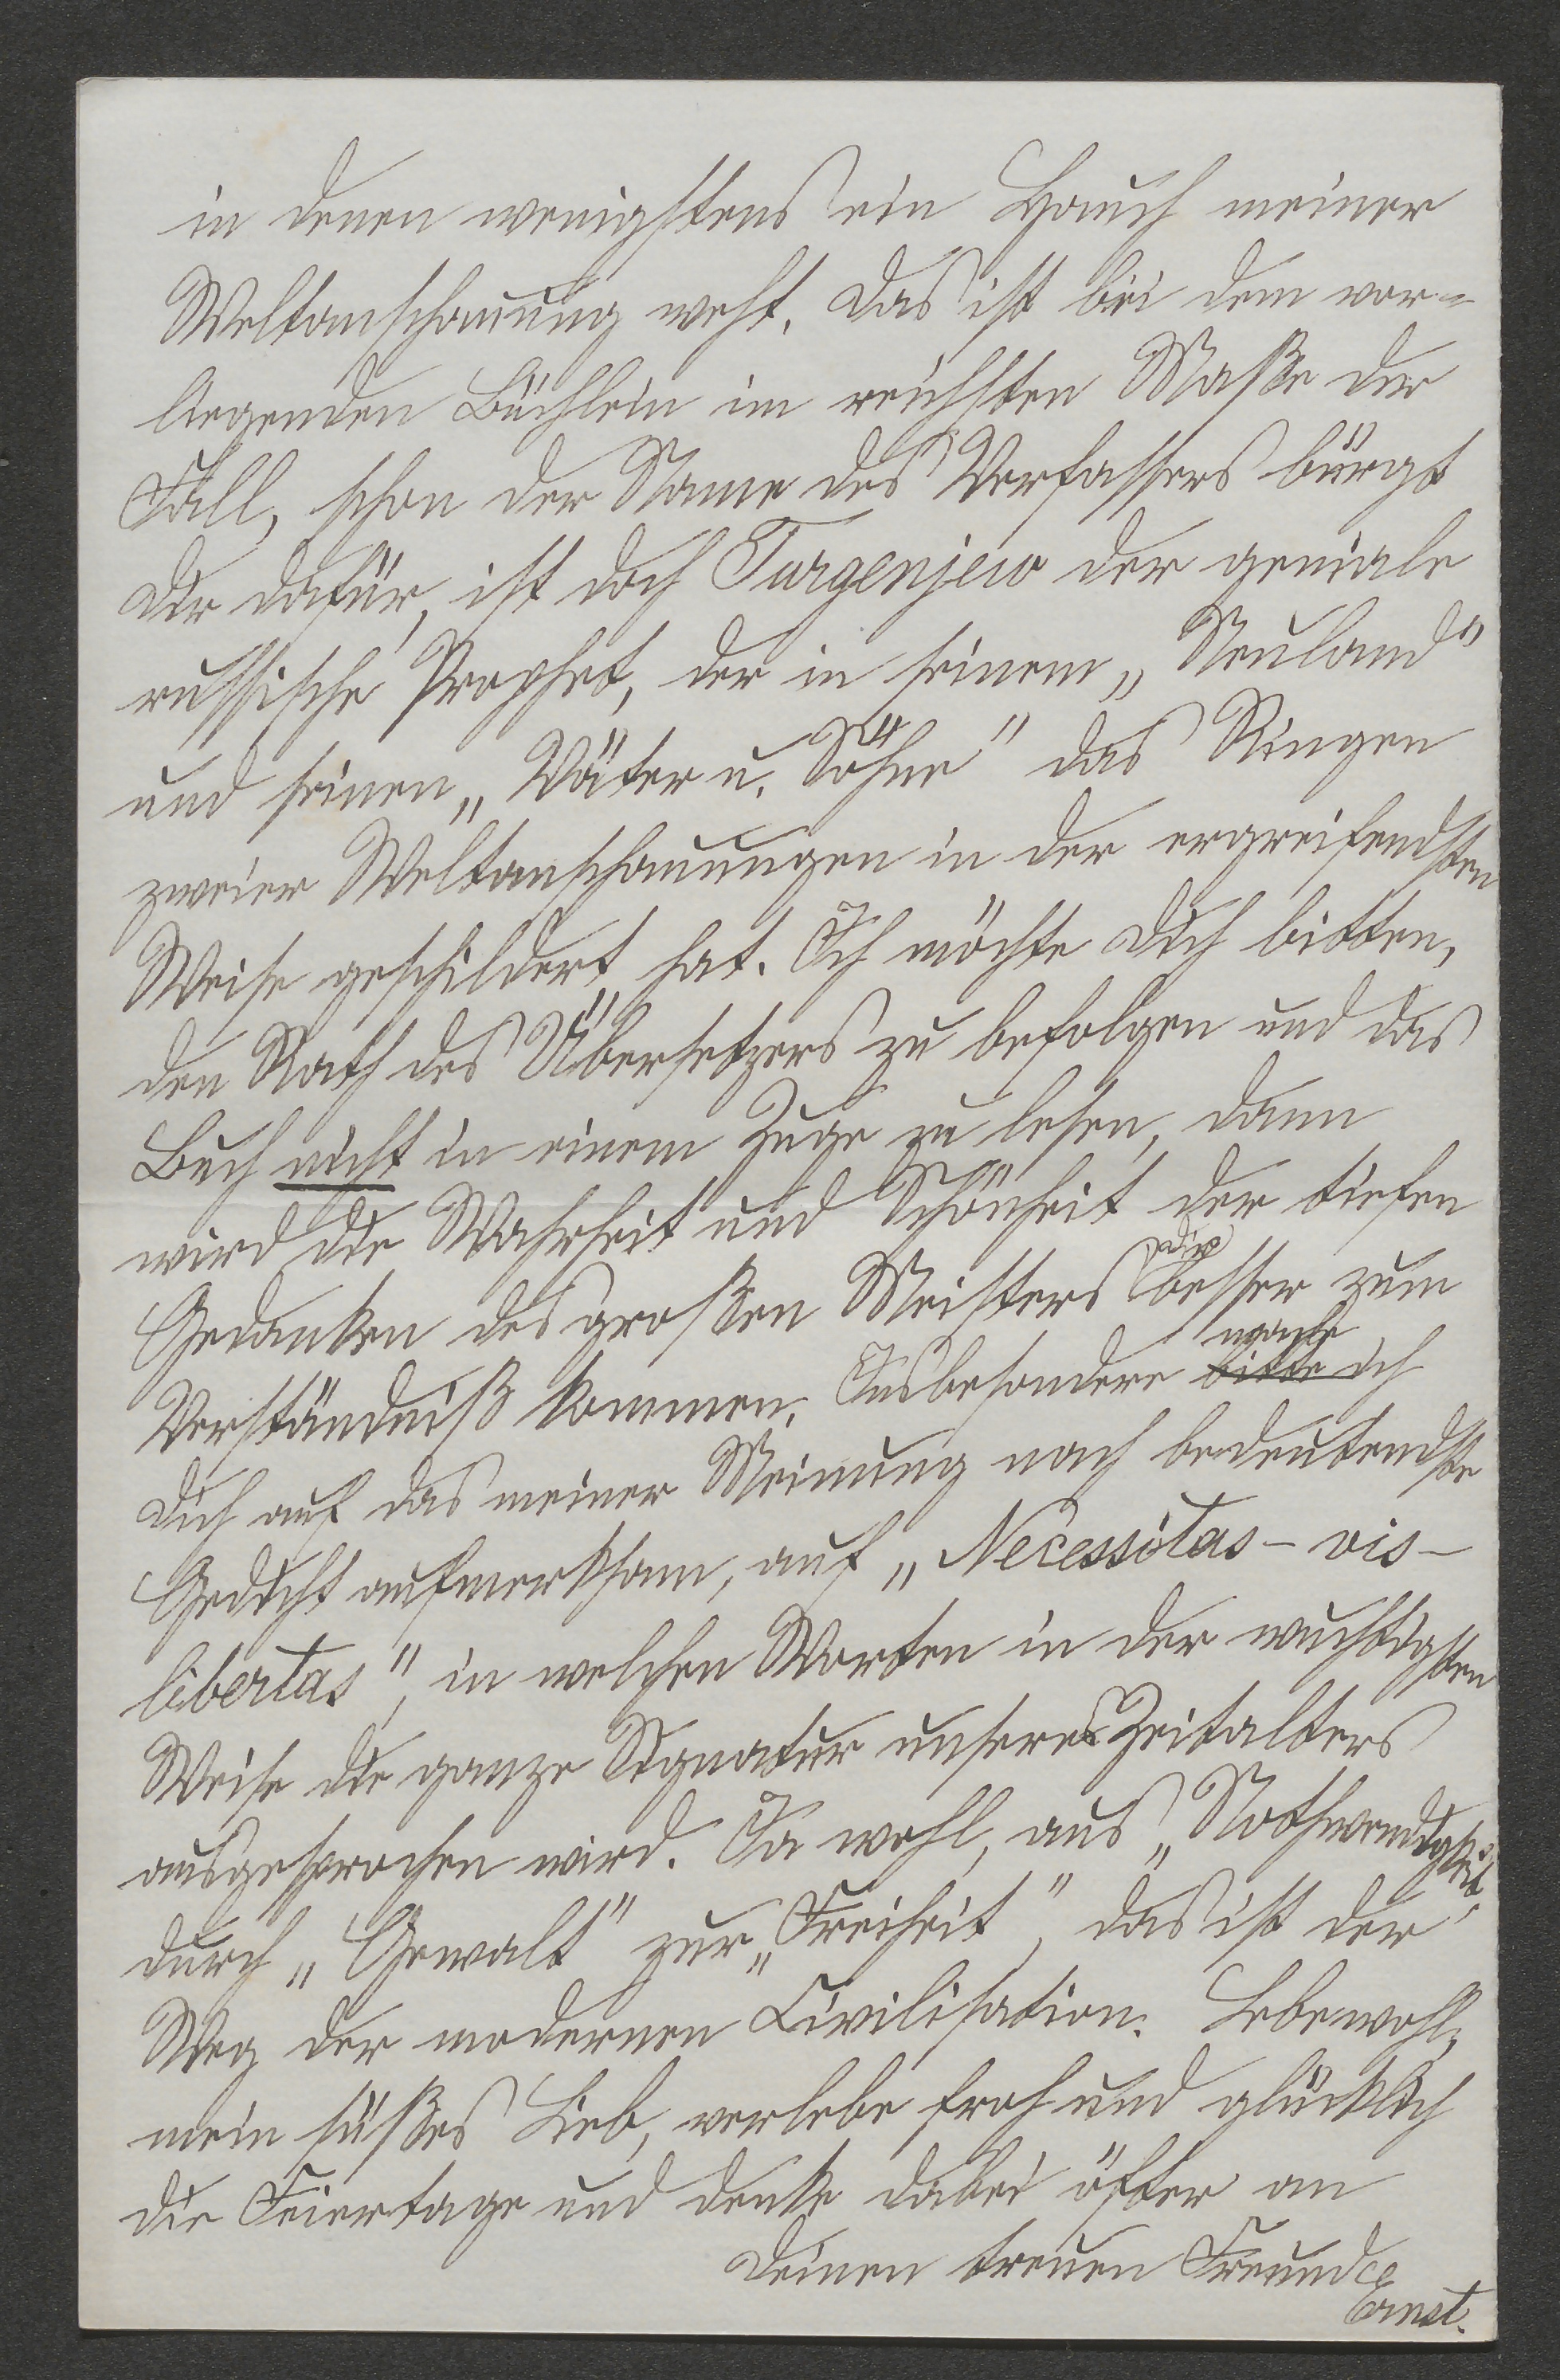 in denen wenigstens ein Hauch meiner
Weltanschauung weht. Das ist bei dem vor-
liegenden Büchlein im reichsten Maße der
Fall, schon der Name des Verfassers bürgt
Dir dafür, ist doch Turgenjew der geniale
russische Prophet, der in seinem „Neuland"
und seinen „Väter u. Söhne" das Ringen
zweier Weltanschauungen in der ergreifendsten
Weise geschildert hat. Ich möchte Dich bitten,
den Rath des Übersetzers zu befolgen und das
Buch nicht in einem Zuge zu lesen, dann
wird die Wahrheit und Schönheit der tiefen
Gedanken des großen Meisters dir besser zum
Verständniß kommen. Insbesondere bitte mache ich
Dich auf das meiner Meinung nach bedeutendste
Gedicht aufmerksam, auf „Necessitas - vis -
libertas", in welchen Worten in der wuchtigsten
Weise die ganze Signatur unseres Zeitalters
ausgesprochen wird. Ja wohl, aus „Nothwendigkeit"
durch „Gewalt" zur „Freiheit", das ist der
Weg der modernen Civilisation. Lebewohl,
mein süßes Lieb, verlebe froh und glücklich
die Feiertage und denke dabei öfter an
Deinen treuen Freund
Ernst.